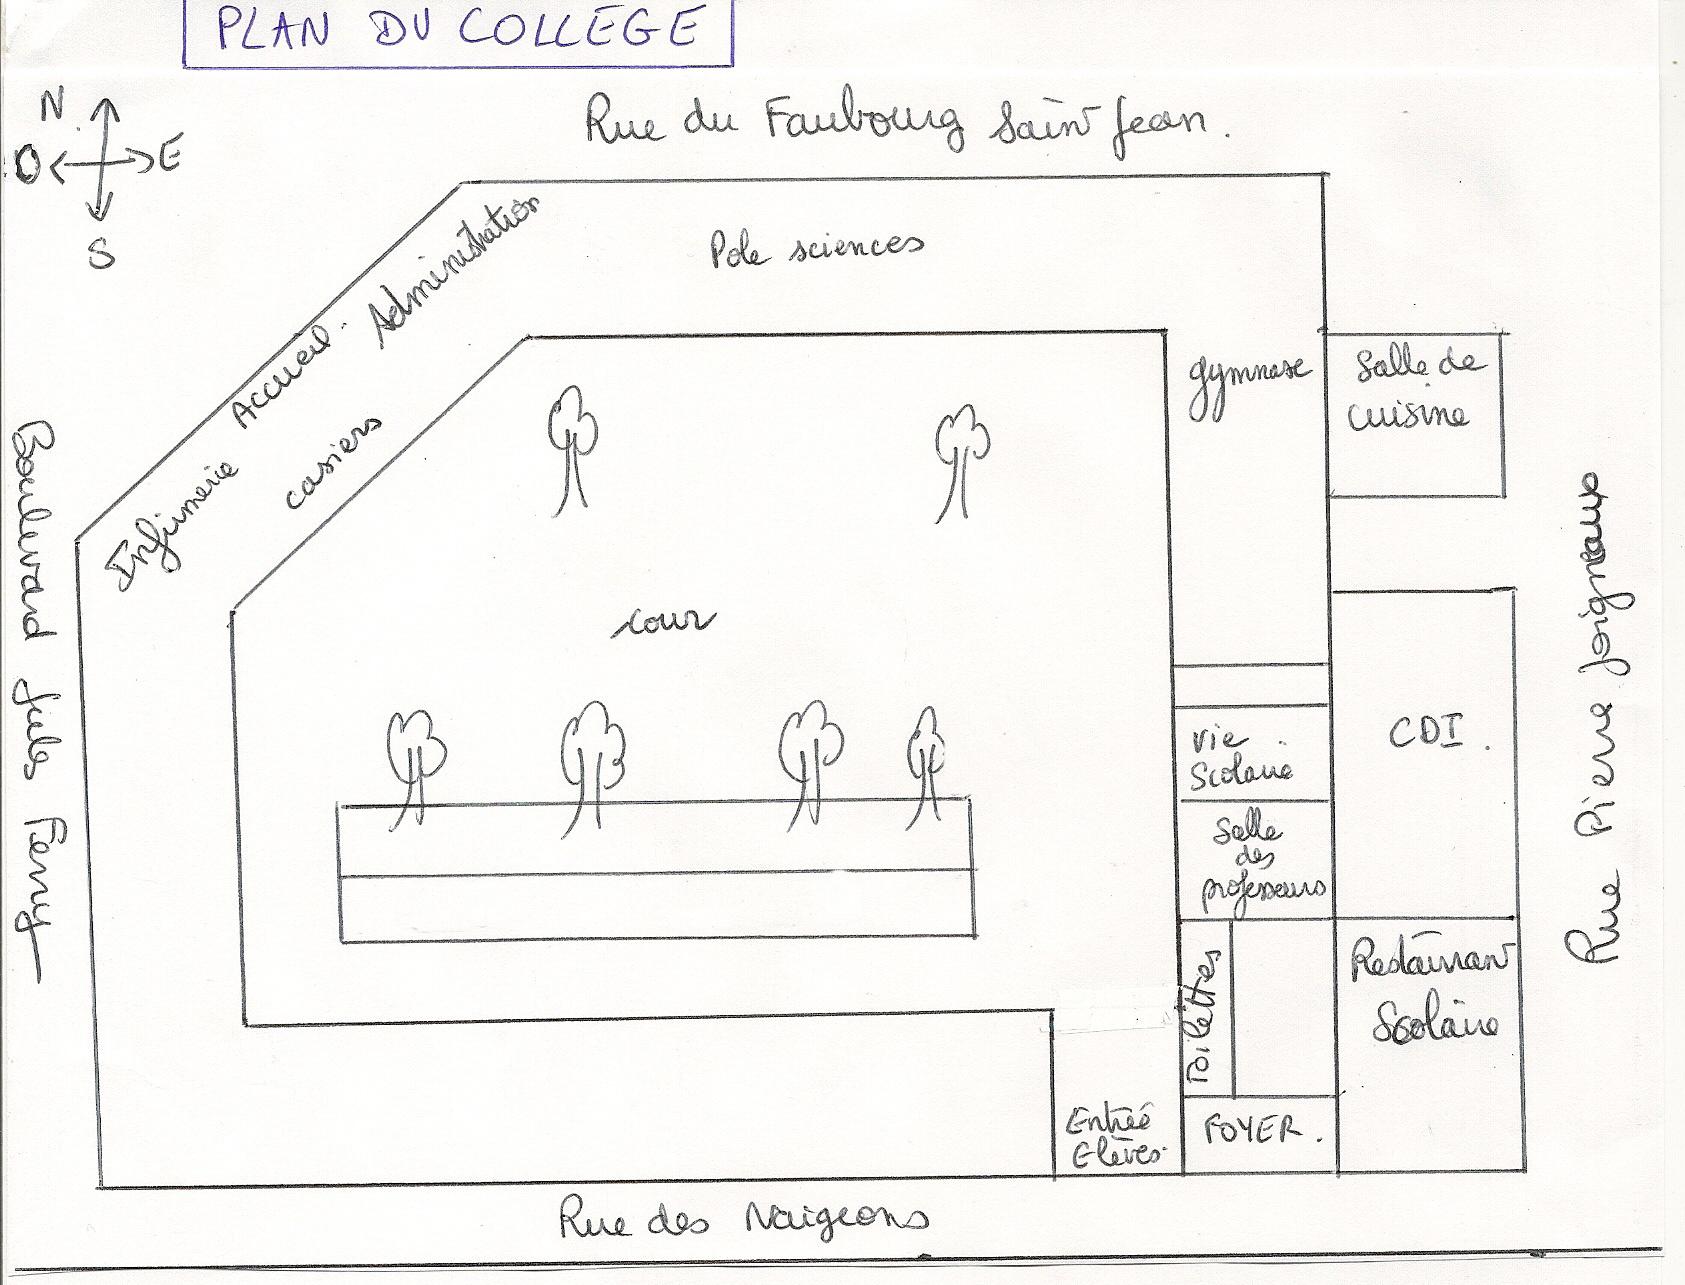 PLAN DU COLLEGE
N
O E
S
Rue du Faubourg Saint Jean.
Pole sciences
Administration
Accueil.
Infirmerie
casiers
gymnase
Salle de
cuisine
Boulevard Jules Ferry
cour
Rue Pierre Joigneaux
CDI.
vie
Scolaire
Salle
des
professeurs
Restaurant
Scolaire
Toilettes
Entrée
Elèves.
FOYER.
Rue des Naigeons